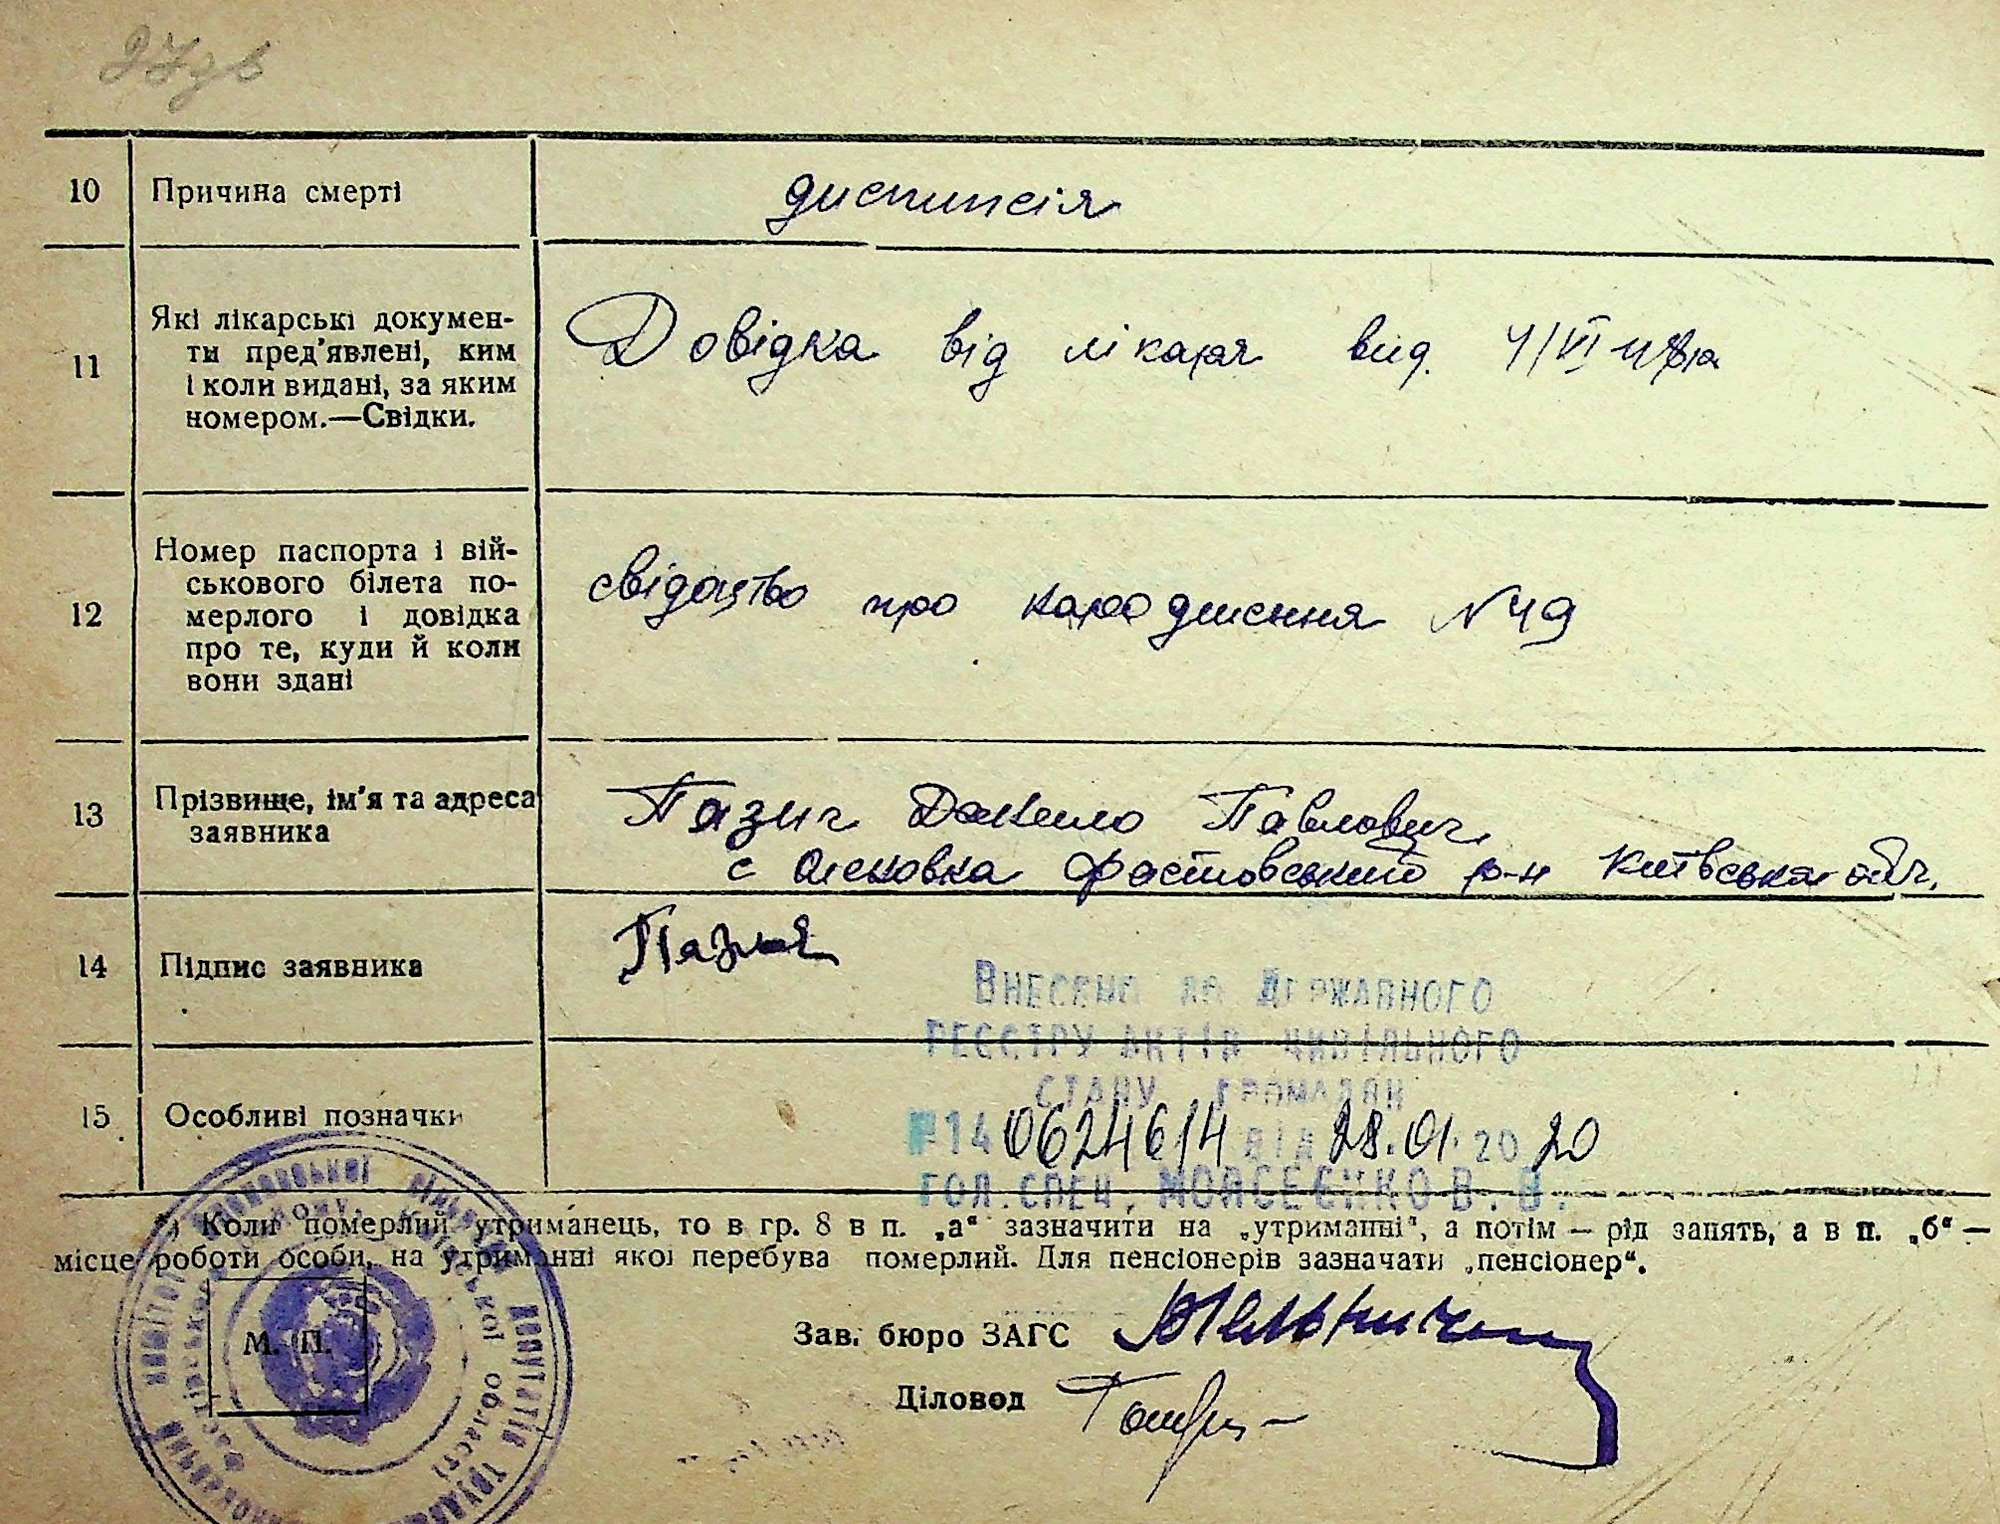 27зв
10 Причина смерті диспипсія
11 Які лікарські докумен-
ти пред'явлені, ким
і коли видані, за яким
номером.—Свідки.
Довідка від лікаря вид. 4/VI
12 Номер паспорта і вій-
ськового білета по-
мерлого і довідка
про те, куди й коли
вони здані
свідоцтво про народження №49
13 Прізвище, ім'я та адреса
заявника
Пазич Данило Павлович
с Фастовський р-н Київська обл.
14 Підпис заявника
Пазич
15 Особливі позначки
Внесено до Державного
реєстру актів цивільного
стану громадян
№14 0624614 від 28.01.2020
гол.спец. Мойсеєнко В.В.
*) Коли померлий утриманець, то в гр. 8 в п. „а“ зазначити на „утриманні“, а потім — рід занять, а в п. „б“ —
місце роботи особи, на утриманні якої перебува померлий. Для пенсіонерів зазначати „пенсіонер“.
М. П.
Зав. бюро ЗАГС
Діловод